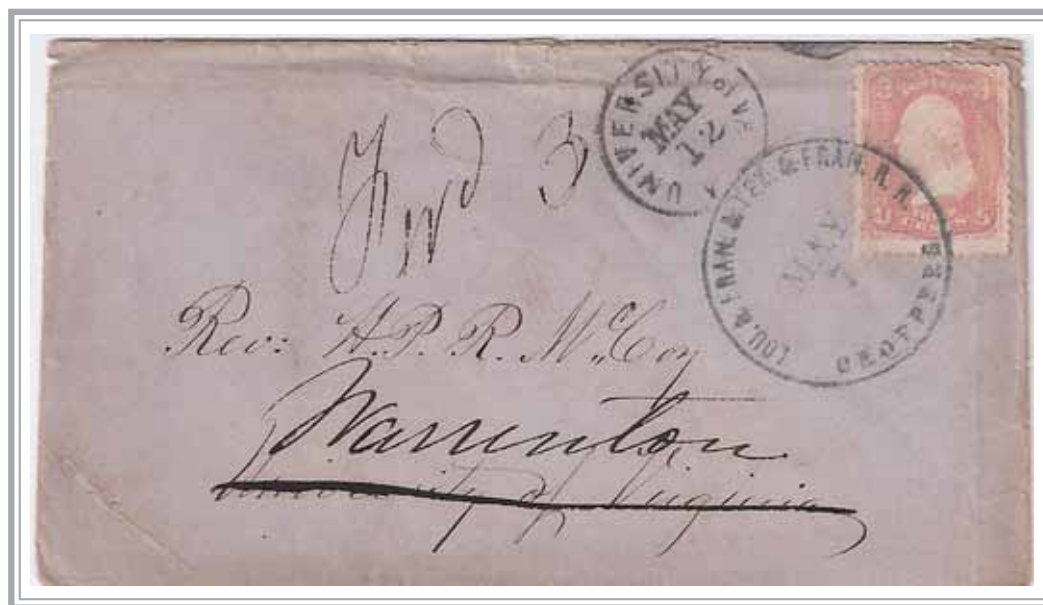 Fwd 3
UNIVERSITY of VA
MAY
12
LOU. & FRAN. & LEX. & FRAN. R. R.
MAY
Rev: H. P. R. McCoy
Warrenton
University of Virginia